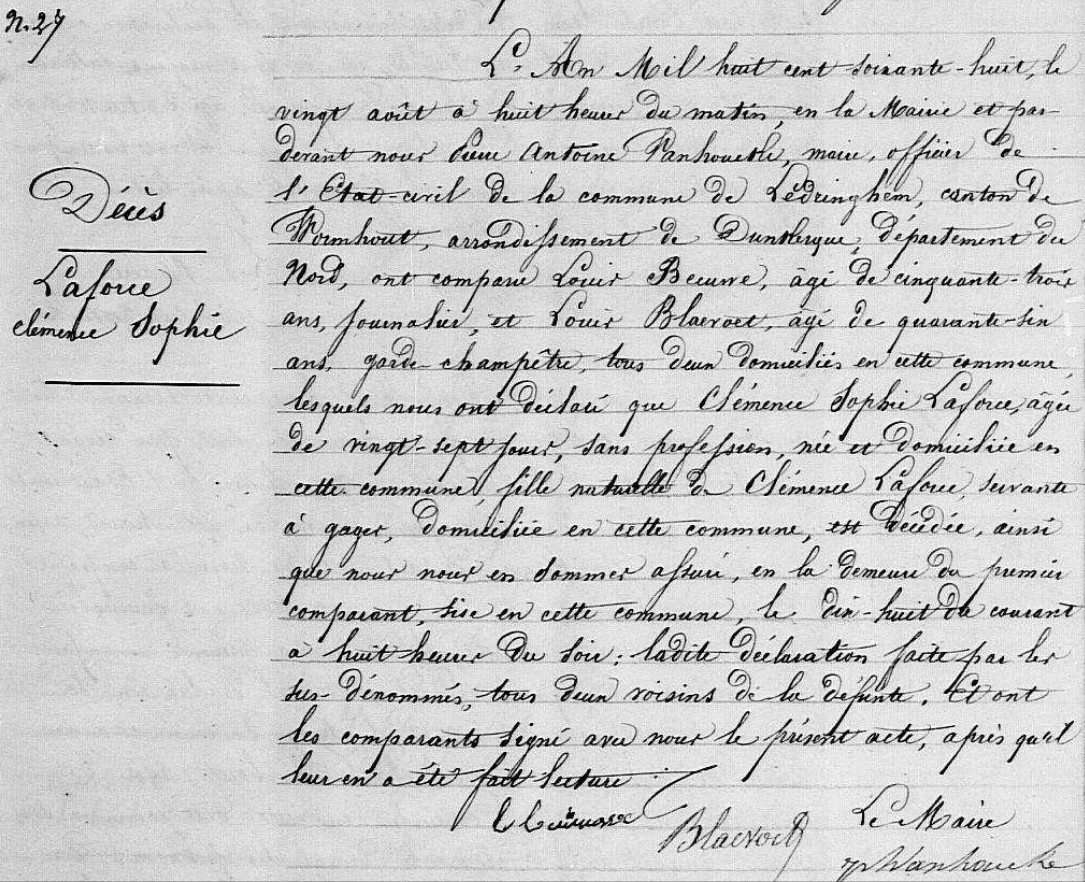 N. 27
Décès
Laforce
Clémence Sophie
L'An Mil huit cent soixante-huit, le
vingt août à huit heures du matin, en la Mairie et par
devant nous Pierre Antoine Vanhoucke, maire, officier de
l'Etat-civil de la commune de Lédringhem, canton de
Wormhout, arrondissement de Dunkerque, département du
Nord, ont comparu Louis Beuwe, âgé de cinquante-trois
ans, journalier, et Louis Blaevoet, âgé de quarante-six
ans, garde-champêtre, tous deux domiciliés en cette commune,
lesquels nous ont déclaré que Clémence Sophie Laforce, âgée
de vingt-sept jours, sans profession, née et domiciliée en
cette commune, fille naturelle de Clémence Laforce, servante
à gages, domiciliée en cette commune, est décédée, ainsi
que nous nous en sommes assuré, en la demeure du premier
comparant, sise en cette commune, le dix-huit du courant
à huit heures du soir; ladite déclaration faite par les
sus-dénommés, tous deux voisins de la défunte. Et ont
les comparants signé avec nous le présent acte, après qu'il
leur en a été fait lecture
Blaevoet
Le Maire
Vanhoucke